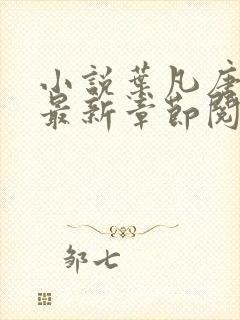 小說葉凡唐
最新章節閱
邹七